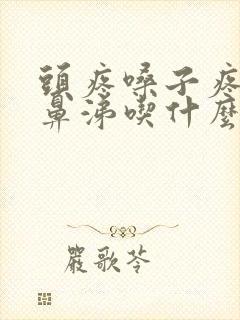 頭疼嗓子疼
鼻涕喫什麼
嚴歌苓